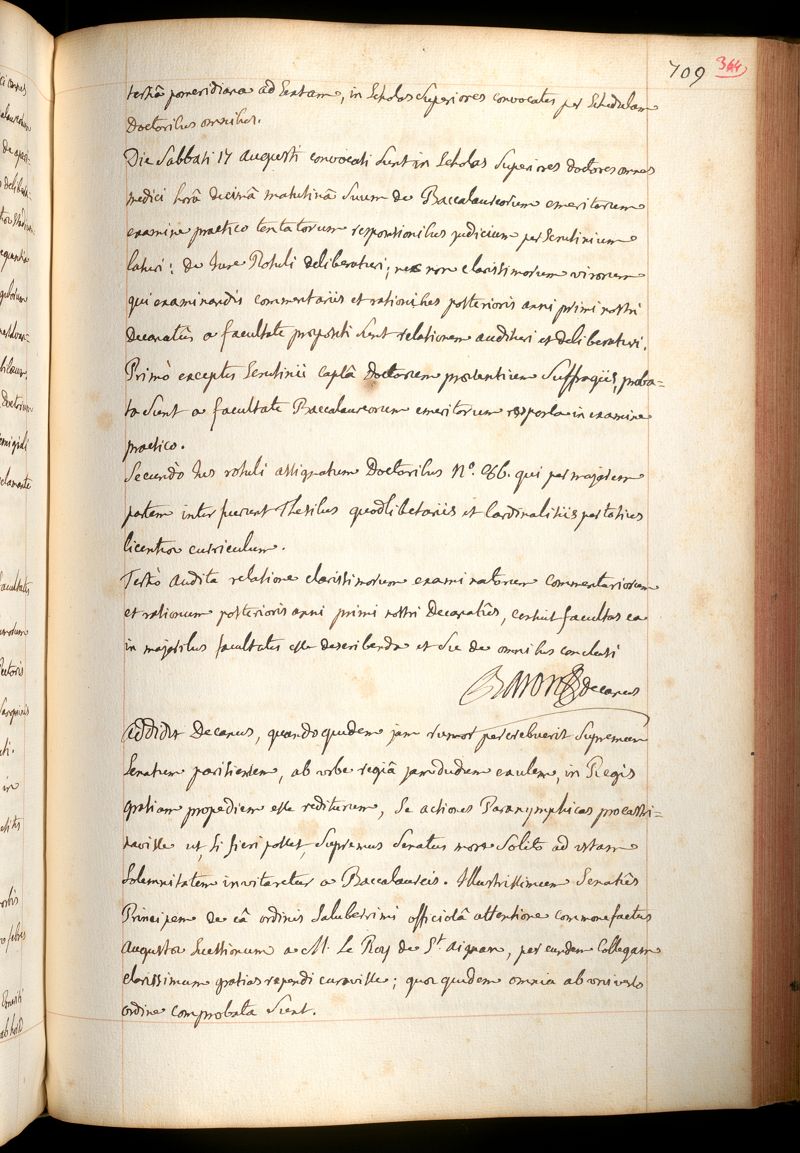 709 364
tertiâ pomeridiana ad sextam, in Scholas Superiores convocatis per Schedulam
Doctoribus omnibus.
Die Sabbati 17 augusti convocati sunt in Scholas Superiores doctores omnes
medici horâ decimâ matutinâ suum de Baccalaureorum emeritorum
examine practico tentatorum responsionibus judicium per scrutinium
laturi: de Jure Rotuli deliberaturi; nec non clarissimorum virorum
qui examinandis commentariis et rationibus posterioris anni primi nostri
Decanatûs a facultate præpositi sunt relationem audituri et deliberaturi.
Primò exceptis scrutinii capsâ Doctorum præsentium Suffragiis, proba=
ta sunt a facultate Baccalaureorum emeritorum responsa in examine
practico.
Secundò Jus rotuli assignatum Doctoribus N.º 86. qui per majorem
partem interfuerunt Thesibus quodlibetariis et Cardinalitiis per totius
licentiæ curriculum.
Tertiò audita relatione clarissimorum examinatorum commentariorum
et rationum posterioris anni primi nostri Decanatûs, censuit facultas ea
in majoribus facultatis esse describenda et sic de omnibus conclusi
Baron decanus
Addidit Decanus, quandoquidem jam rumor percrebuerit Supremum
Senatum parisiensem, ab urbe regiâ jamdudum exulem, in Regis
gratiam propediem esse rediturum, se actiones Paranymphicas procrasti=
navisse ut, si fieri posset, Supremus Senatus more Solito ad istam
Solemnitatem invitaretur a Baccalaureis. Illustrissimum Senatûs
Principem de eâ ordinis Saluberrimi officiosâ attentione commonefactus
Augustæ Suessionum a M. Le Roy de St. Aignan, per eundem Collegam
clarissimum gratias rependi curavisse; quæ quidem omnia ab universo
ordine comprobata sunt.